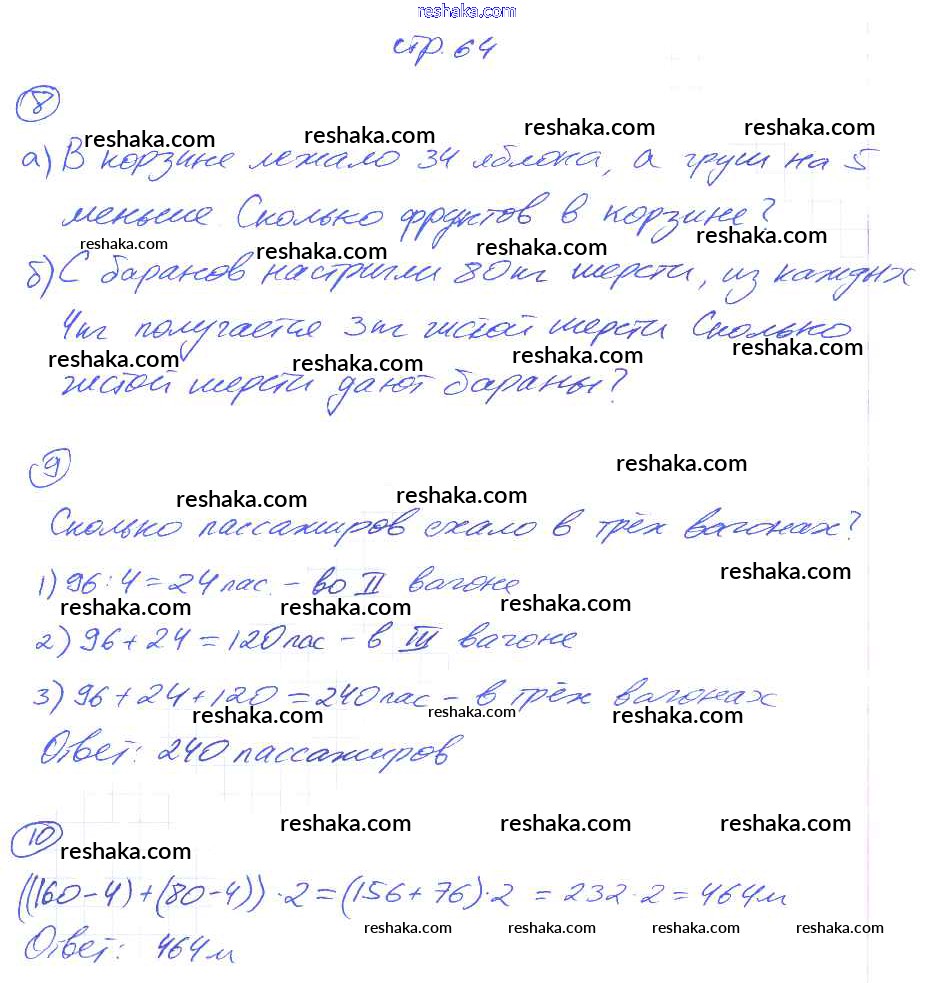 reshaka.com
стр. 64
8
reshaka.com reshaka.com reshaka.com reshaka.com
а) В корзине лежало 34 яблока, а груш на 5
меньше Сколько фруктов в корзине?
reshaka.com reshaka.com reshaka.com reshaka.com
б) С баранов настригли 80 кг шерсти, из каждых
4 кг получается 3 кг чистой шерсти Сколько
reshaka.com reshaka.com reshaka.com reshaka.com
чистой шерсти дают бараны?
9
reshaka.com
reshaka.com reshaka.com
Сколько пассажиров ехало в трёх вагонах?
reshaka.com
1) 96 : 4 = 24 пас. - во II вагоне
reshaka.com reshaka.com reshaka.com
2) 96 + 24 = 120 пас - в III вагоне
3) 96 + 24 + 120 = 240 пас - в трёх вагонах
reshaka.com reshaka.com reshaka.com
Ответ: 240 пассажиров
10
reshaka.com reshaka.com reshaka.com reshaka.com
((160 - 4) + (80 - 4)) · 2 = (156 + 76) · 2 = 232 · 2 = 464 м
reshaka.com reshaka.com reshaka.com
Ответ: 464 м